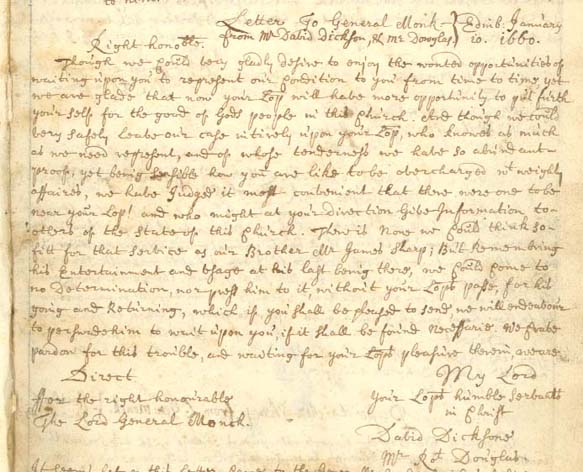 Letter To General Monk Edinb. January
from Mr David Dickson, & Mr Douglas, 10. 1660.
Right honoble.
Though we could very gladly desire to enjoy the wonted opportunities of
waiting upon you to represent our Condition to you from time to time, yet
we are glade that now your Lop will have more opportunity to put furth
your self for the good of Gods people in this Church. And though we could
very safely leave our case intirely upon your Lop, who knowes as much
as we need represent, and of whose tenderness we have so abundant
proof, yet being sensible how you are like to be overcharged wt weighty
affaires, we have Judged it most convenient that there were one to be
near your Lop! and who might at your direction Give Information to
others of the State of this Church. There is None we could think so
fitt for that service as our Brother Mr James Sharp; But Remembring
his Entertainment and Usage at his last being there, we could come to
no Determination, nor press him to it, without your Lops pase, for his
going and Returning, which if you shall be pleased to send, we will endeavour
to perswade him to wait upon you, if it shall be found Necessarie. We Crave
pardon for this trouble, and waiting for your Lops pleasure therein, we are
Direct My Lord
ffor the right honourable Your Lops humble servants
The Lord General Monck. in Christ
David Dicksone
Mr Rot Douglas.